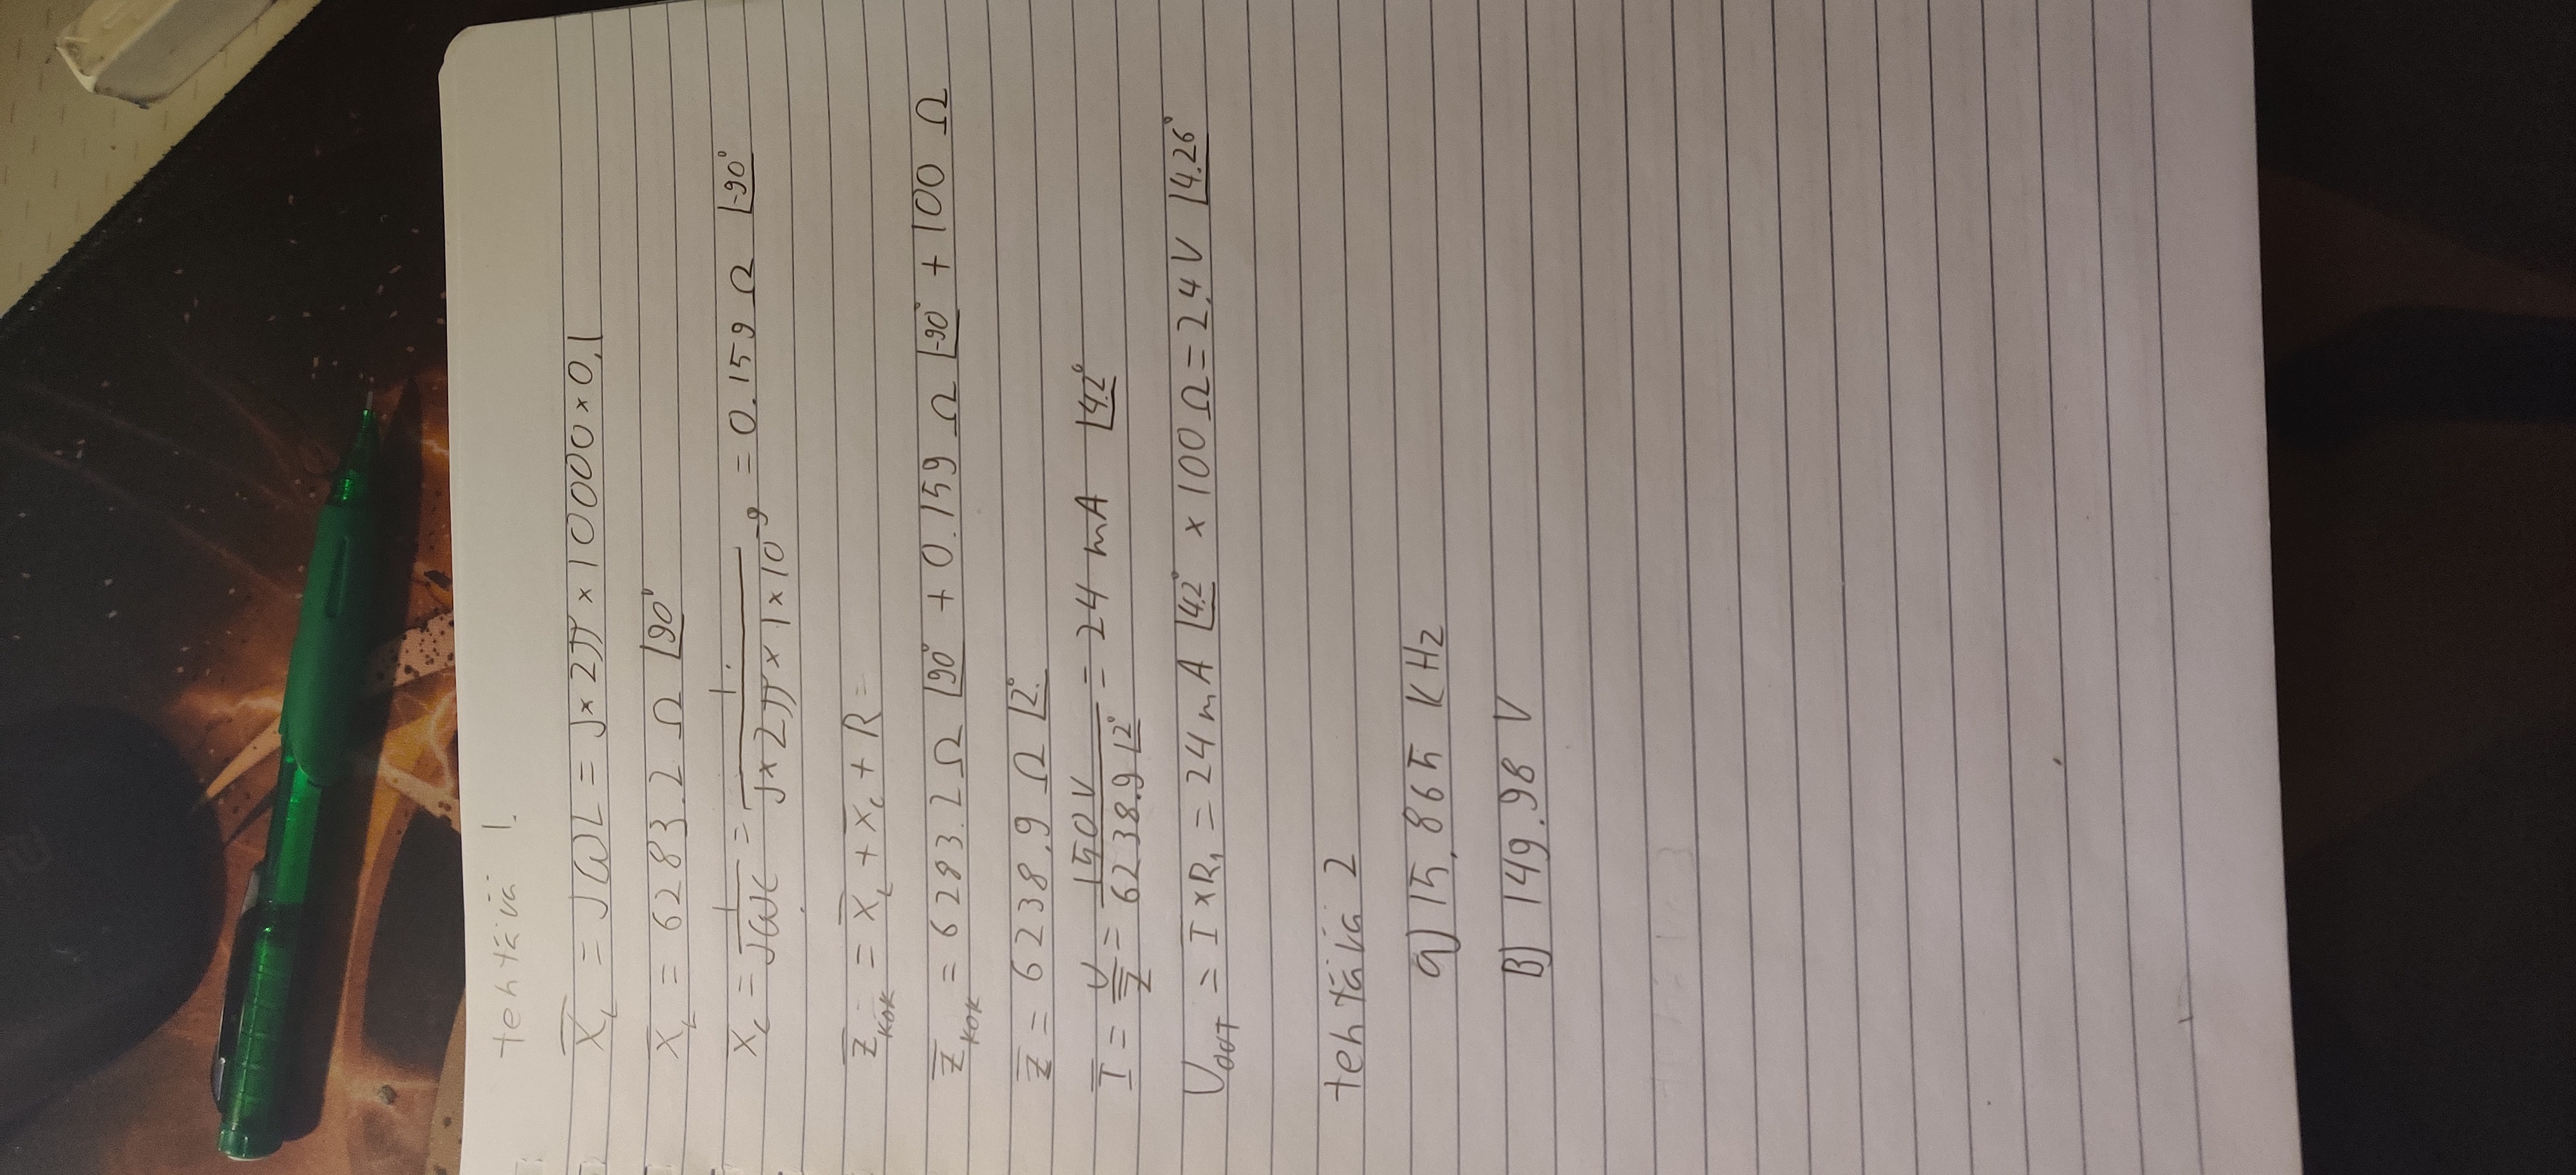 tehtävä 1.
X̅_L = jωL = j × 2π × 10000 × 0,1
X̅_L = 6283.2 Ω ∠90°
X̅_C = 1/jωC = 1/j × 2π × 1 × 10⁻⁹ = 0.159 Ω ∠-90°
Z̅_KOK = X̅_L + X̅_C + R =
Z̅_KOK = 6283.2 Ω ∠90° + 0.159 Ω ∠-90° + 100 Ω
Z̅ = 6238.9 Ω ∠2°
I̅ = U/Z̅ = 150V/6238.9 ∠2° = 24 mA ∠4.2°
U_OUT = I × R₁ = 24 mA ∠4.2° × 100 Ω = 2,4 V ∠4.26°
tehtävä 2
a) 15,865 KHz
B) 149.98 V